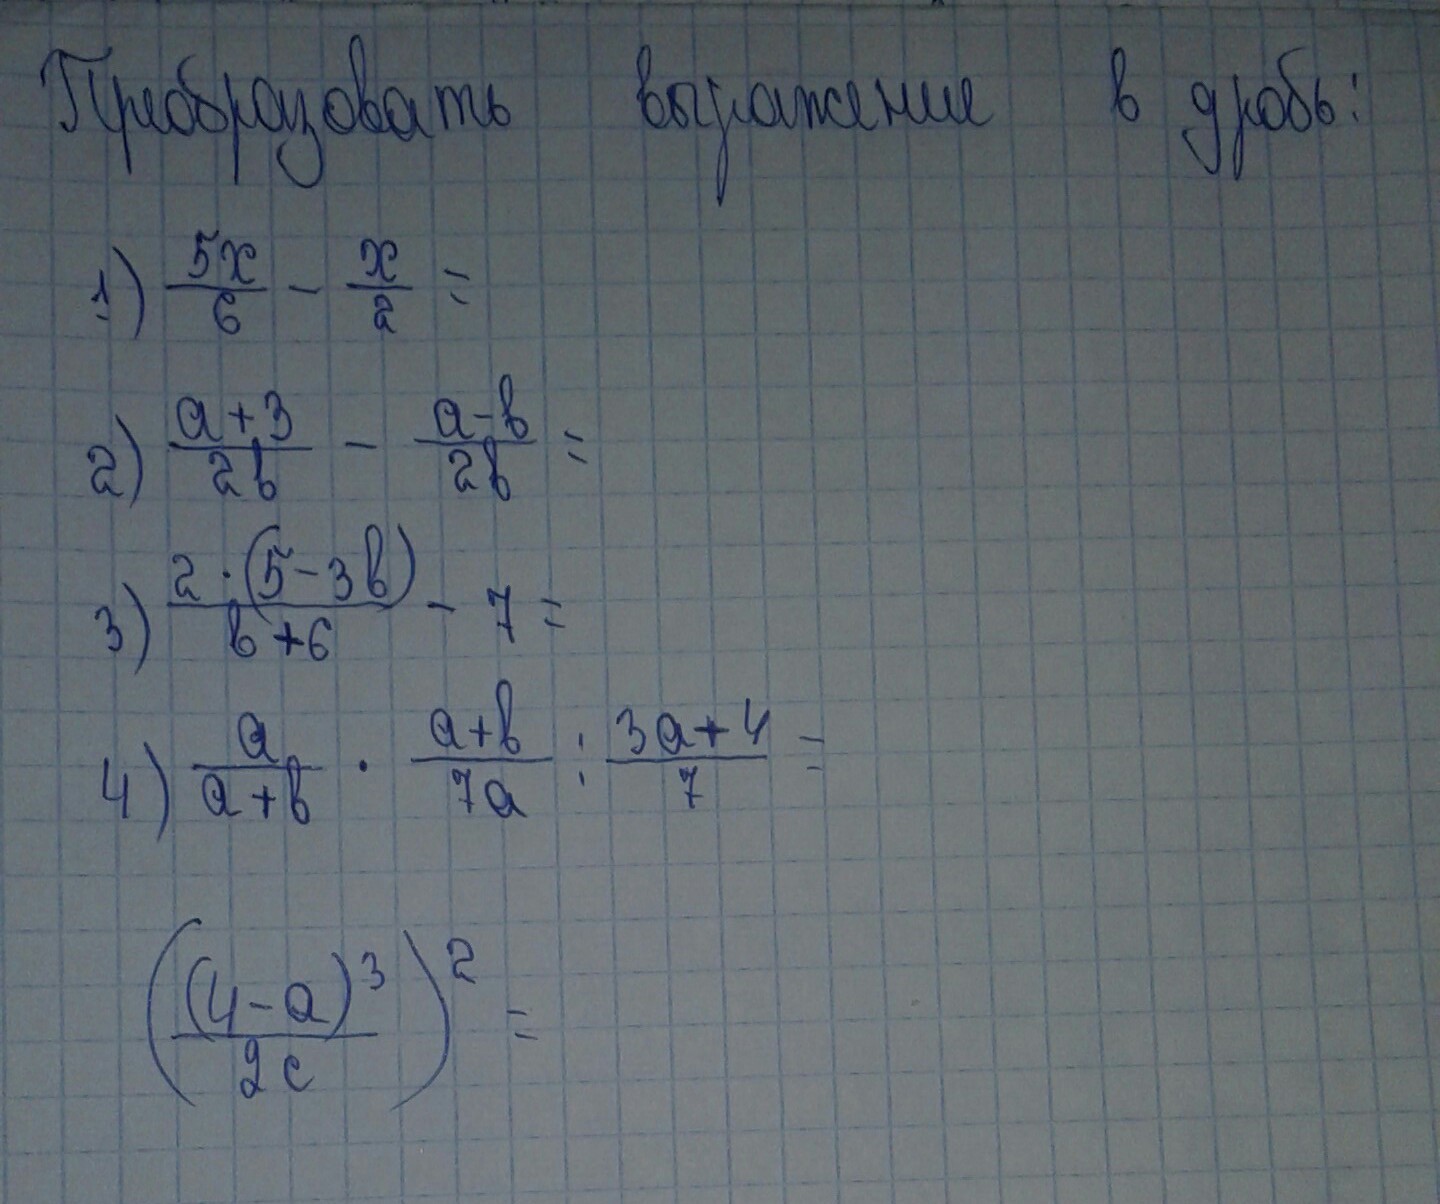 Преобразовать выражение в дробь:
1) 5x/6 - x/2 =
2) a+3/2b - a-b/2b =
3) 2·(5-3b)/b+6 - 7 =
4) a/a+b · a+b/7a : 3a+4/7 =
((4-a)³/2c)² =